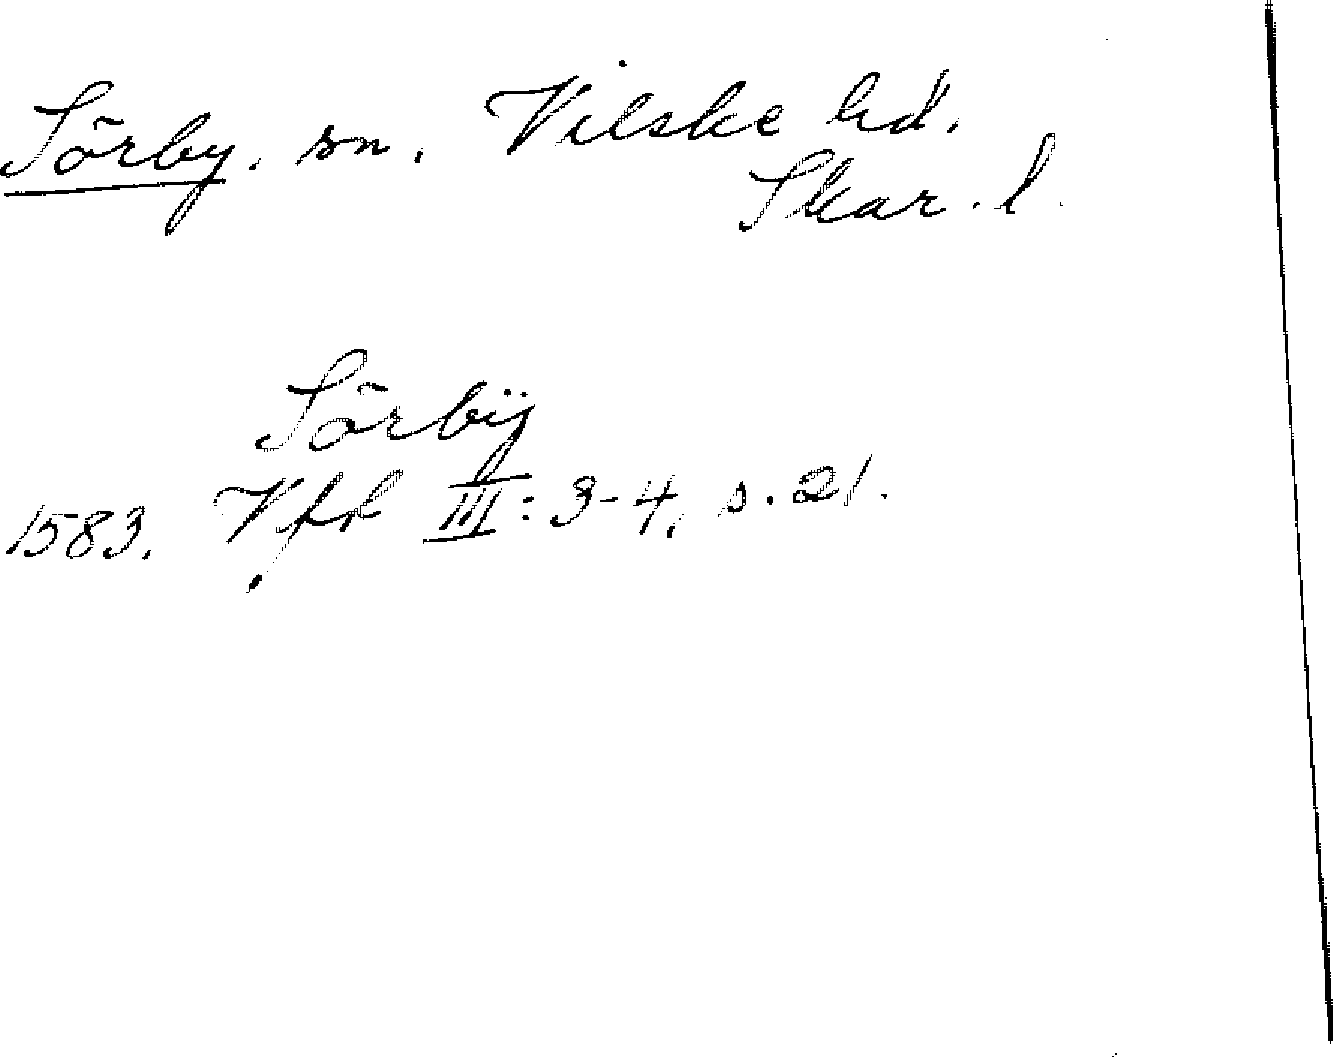 Sörby. sn. Vilske hd.
Skar. l.
Sörbÿ
1583. Vfk III: 3-4, s. 21.